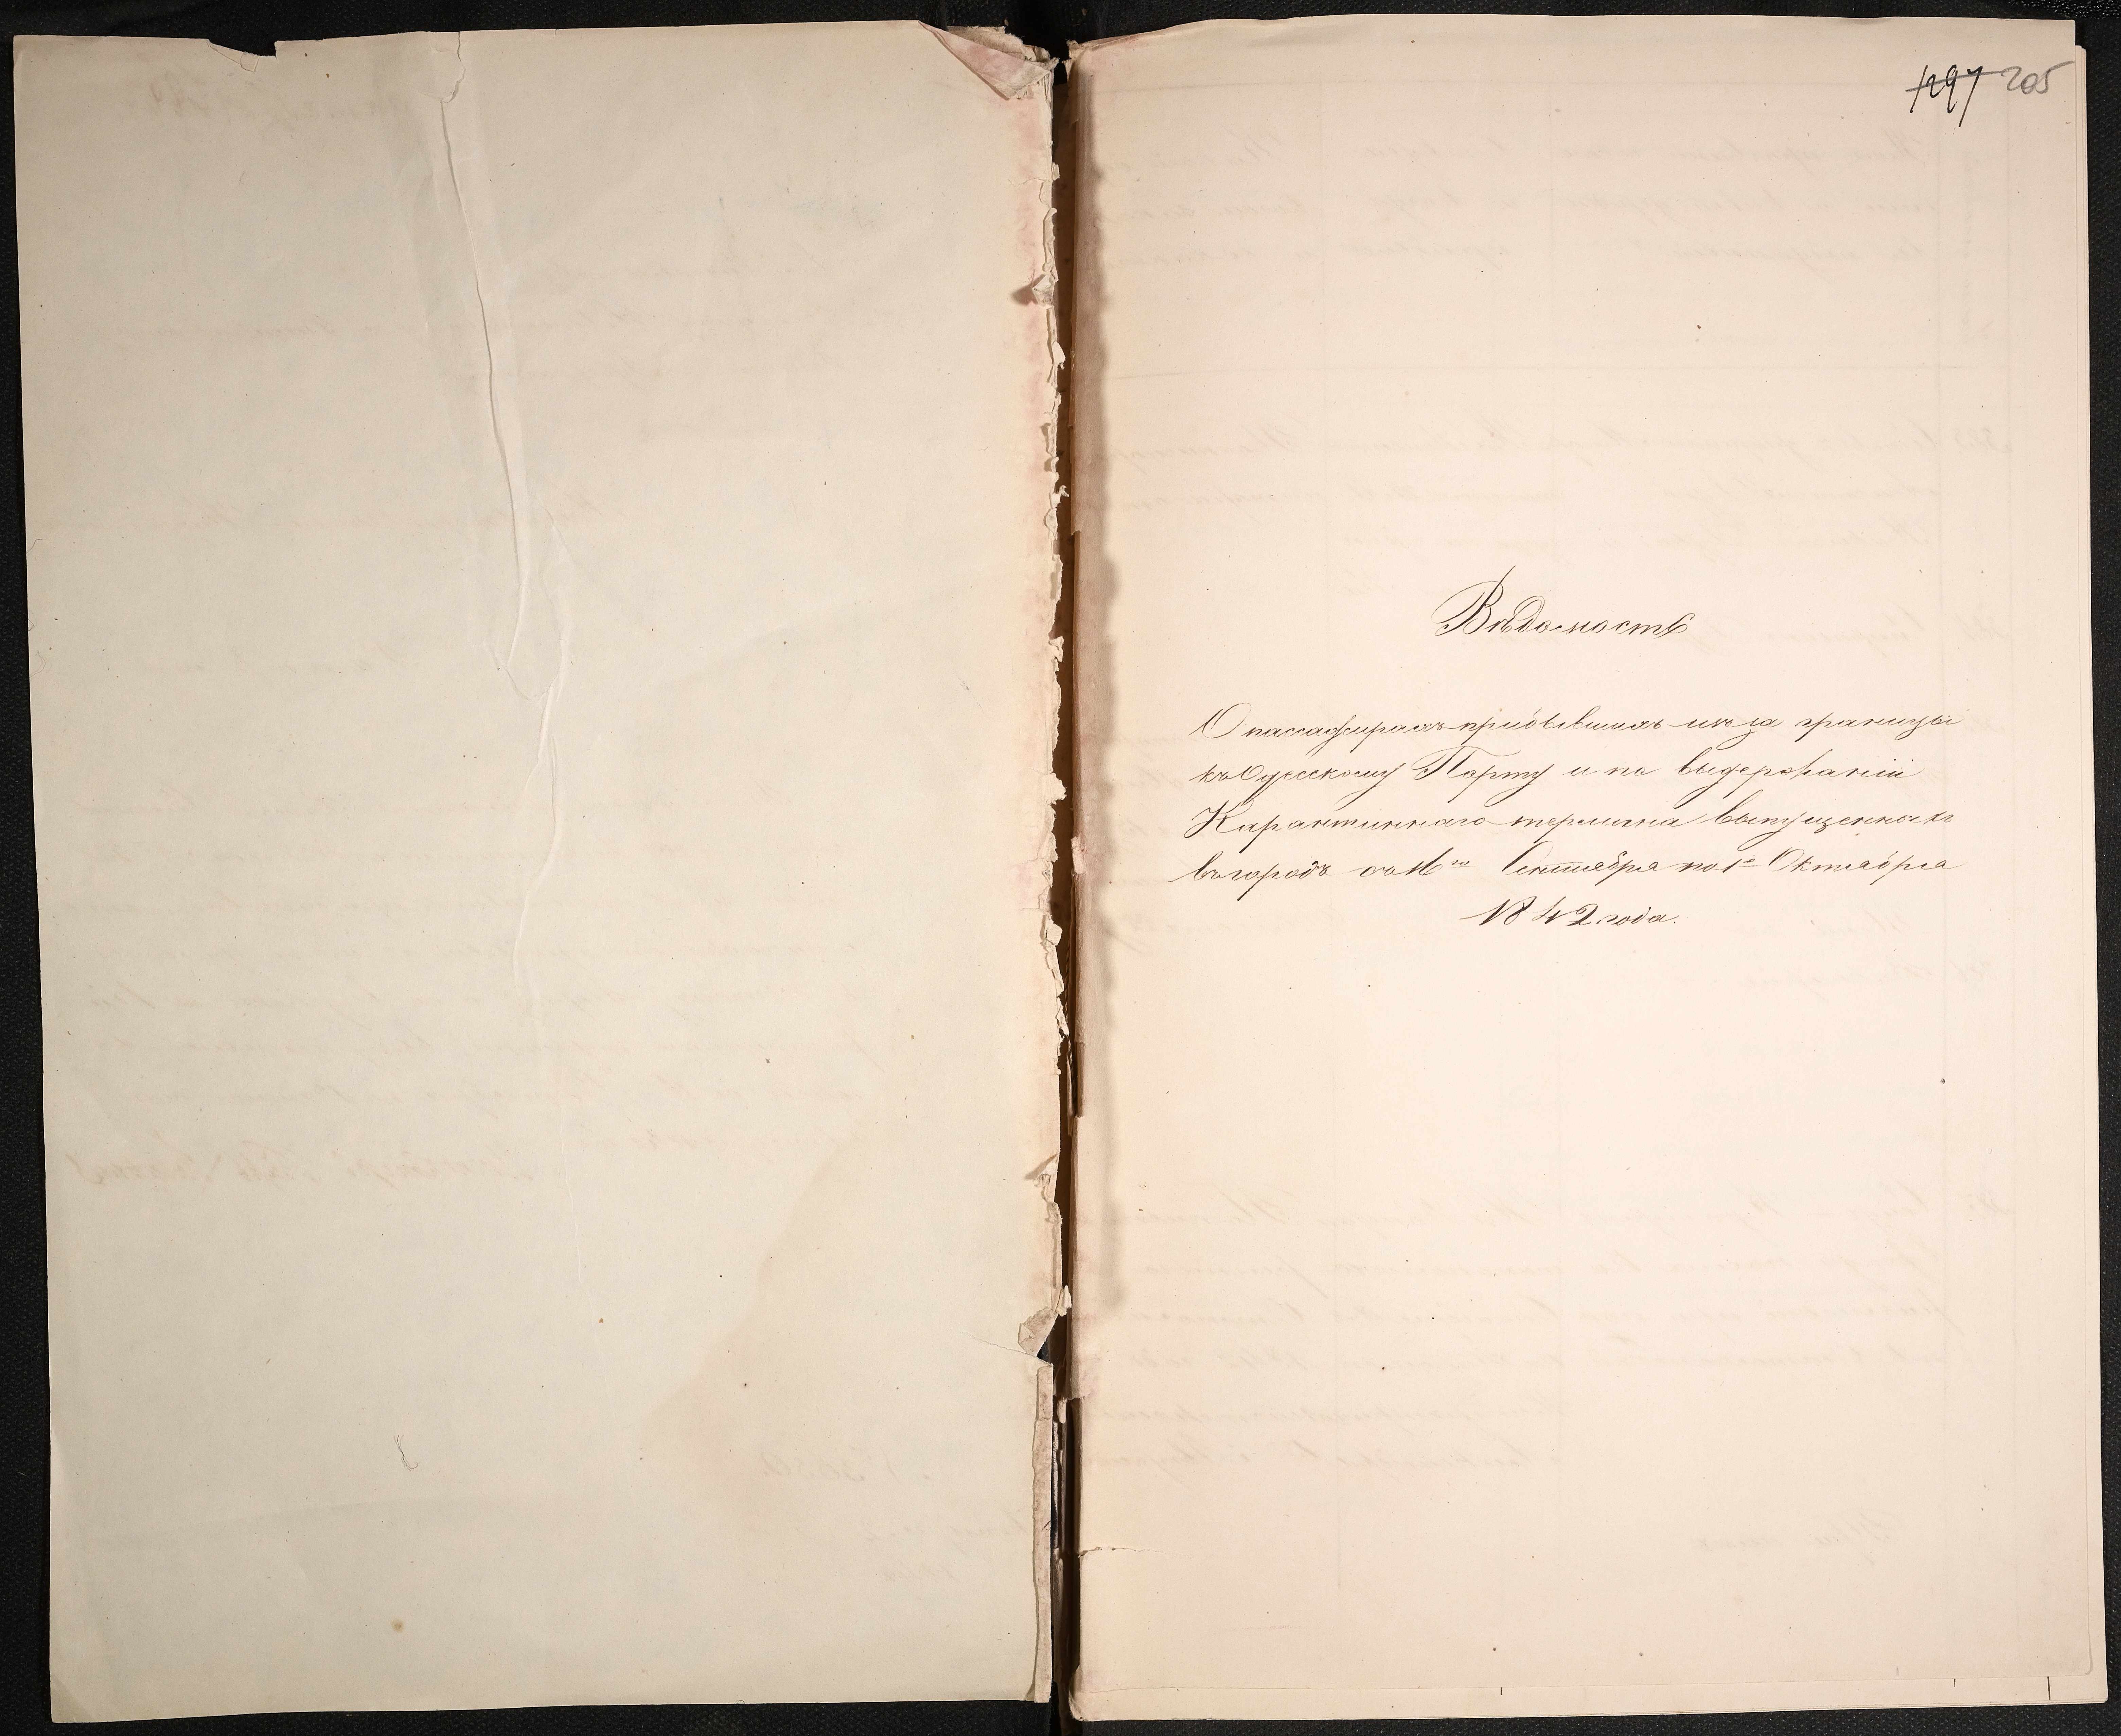 1297 205
Вѣдомость
О пассажирахъ прибывшихъ изъ за границы
къ Одесскому Порту и по выдержаніи
Карантиннаго термина выпущенныхъ
въ городъ съ 16го Сентября по 1е Октября
1842 года.